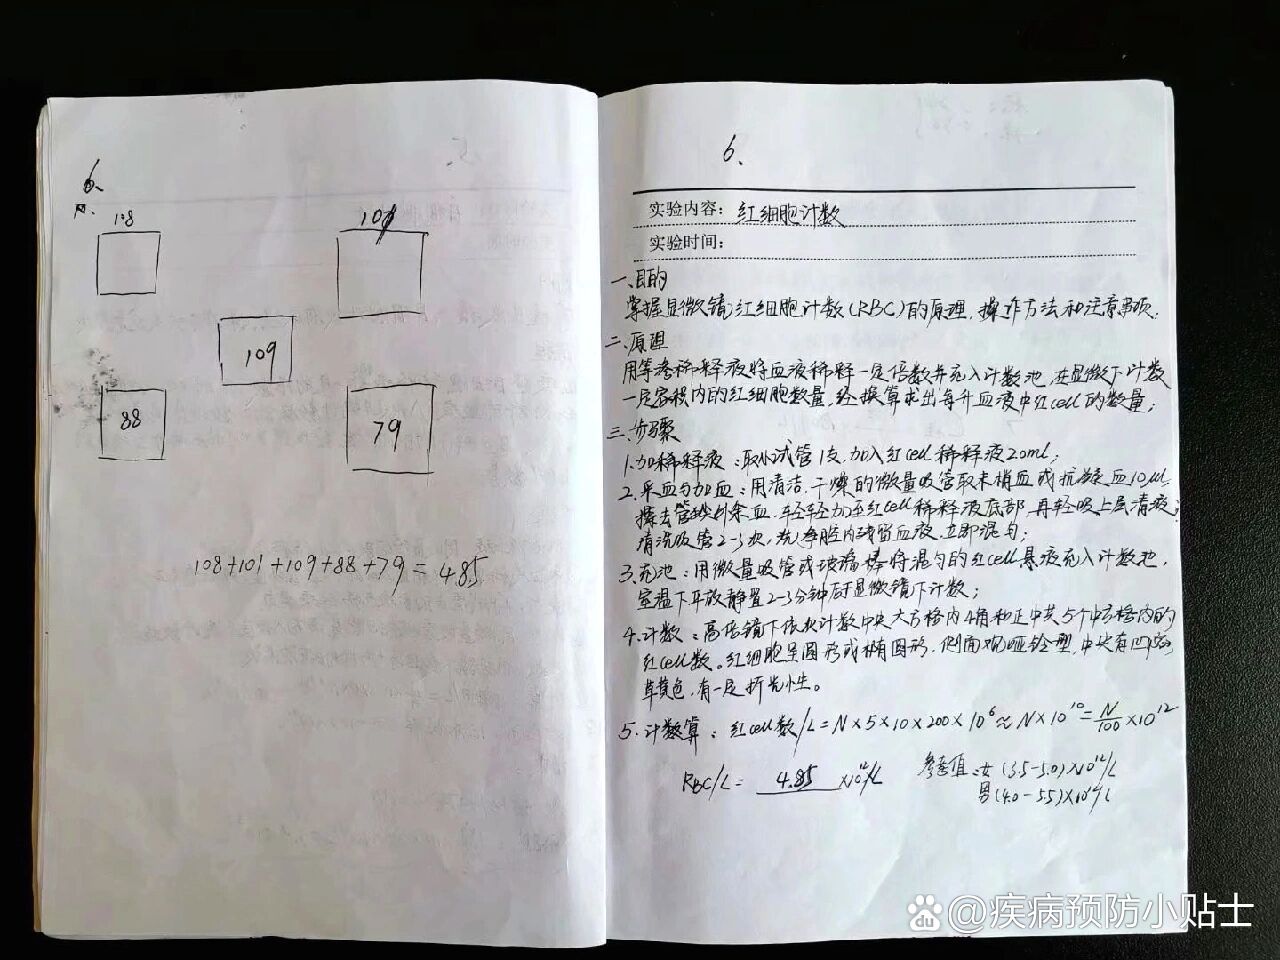 6.
108
101
109
88
79
108+101+109+88+79=485
6.
实验内容：红细胞计数
实验时间：
一、目的
掌握显微镜红细胞计数(RBC)的原理、操作方法和注意事项.
二、原理
用等渗稀释液将血液稀释一定倍数并充入计数池,在显微下计数
一定容积内的红细胞数量,经换算求出每升血液中红cell的数量;
三、步骤
1.加稀释液:取小试管1支,加入红cell稀释液2.0ml;
2.采血与加血:用清洁、干燥的微量吸管取末梢血或抗凝血10μl
擦去管外余血,轻轻加至红cell稀释液底部,再轻吸上层清液;
清洗吸管2-3次,洗净腔内残留血液,立即混匀;
3.充池:用微量吸管或玻璃棒将混匀的红cell悬液充入计数池,
室温下平放静置2-3分钟后于显微镜下计数;
4.计数:高倍镜下依次计数中央大方格内4角和正中共5个中方格内的
红cell数。红细胞呈圆形或椭圆形,侧面观哑铃型,中央有凹
草黄色,有一定折光性。
5.计数算:红cell数/L=N×5×10×200×10⁶≈N×10¹⁰=N/100×10¹²
RBC/L= 4.85 ×10¹²/L 参考值:女(3.5-5.0)×10¹²/L
男(4.0-5.5)×10¹²/L
@疾病预防小贴士